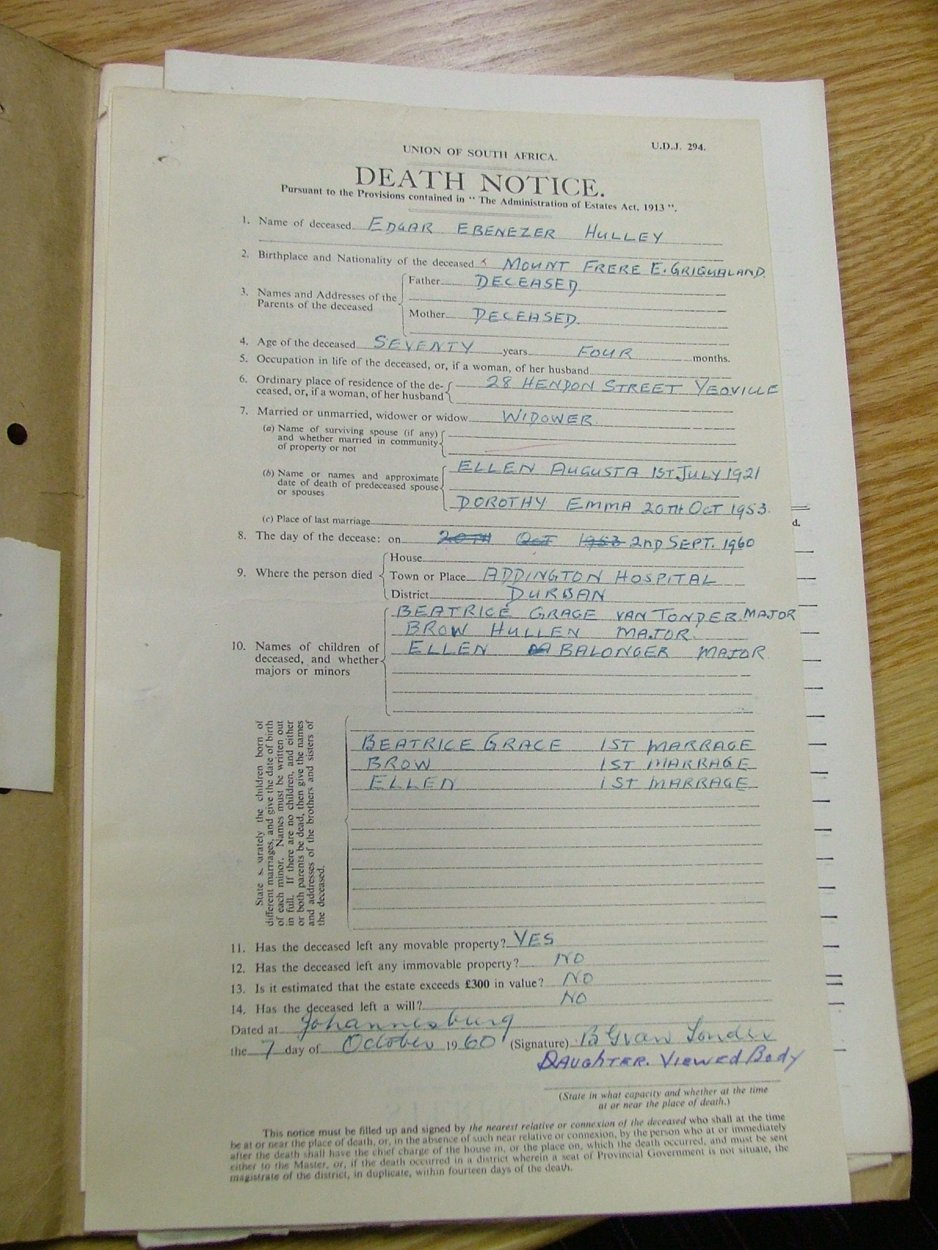 UNION OF SOUTH AFRICA.
U.D.J. 294.
DEATH NOTICE.
Pursuant to the Provisions contained in " The Administration of Estates Act, 1913 ".
1. Name of deceased EDGAR EBENEZER HULLEY
2. Birthplace and Nationality of the deceased MOUNT FRERE E. GRIQUALAND
3. Names and Addresses of the Parents of the deceased
Father DECEASED
Mother DECEASED.
4. Age of the deceased SEVENTY years FOUR months.
5. Occupation in life of the deceased, or, if a woman, of her husband
6. Ordinary place of residence of the de-
ceased, or, if a woman, of her husband
28 HENDON STREET YEOVILLE
7. Married or unmarried, widower or widow WIDOWER
(a) Name of surviving spouse (if any)
and whether married in community
of property or not
(b) Name or names and approximate
date of death of predeceased spouse
or spouses
ELLEN AUGUSTA 1ST JULY 1921
DOROTHY EMMA 20TH OCT 1953.
(c) Place of last marriage
d.
8. The day of the decease: on 20TH OCT 1953 2ND SEPT. 1960
9. Where the person died
House
Town or Place ADDINGTON HOSPITAL
District DURBAN
10. Names of children of
deceased, and whether
majors or minors
BEATRICE GRACE VAN TONDER MAJOR
BROW HULLEN MAJOR.
ELLEN BALONGER MAJOR
State separately the children born of
different marriages, and give the date of birth
of each minor. Names must be written out
in full. If there are no children, and either
or both parents be dead, then give the names
and addresses of the brothers and sisters of
the deceased.
BEATRICE GRACE 1ST MARRAGE
BROW 1ST MARRAGE
ELLEN 1ST MARRAGE
11. Has the deceased left any movable property? YES
12. Has the deceased left any immovable property? NO
13. Is it estimated that the estate exceeds £300 in value? NO
14. Has the deceased left a will? NO
Dated at Johannesburg
the 7 day of October 1960 (Signature) B G van Tonder
DAUGHTER. VIEWED BODY
(State in what capacity and whether at the time
at or near the place of death.)
This notice must be filled up and signed by the nearest relative or connexion of the deceased who shall at the time
be at or near the place of death, or, in the absence of such near relative or connexion, by the person who at or immediately
after the death shall have the chief charge of the house in, or the place on, which the death occurred, and must be sent
either to the Master, or, if the death occurred in a district wherein a seat of Provincial Government is not situate, the
magistrate of the district, in duplicate, within fourteen days of the death.